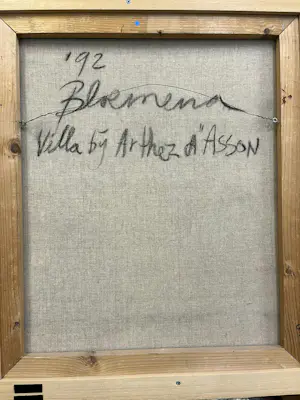 '92
Bloemena
Villa by Arthez d'Asson